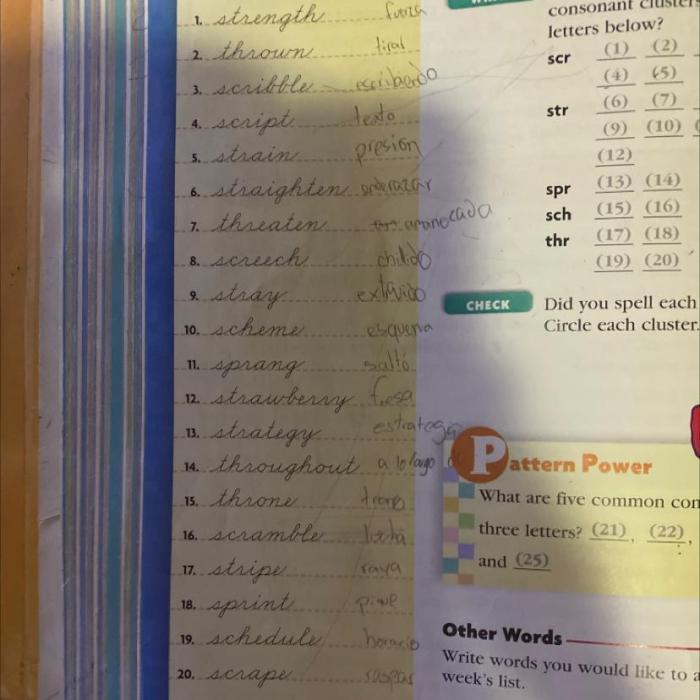 1. strength fuerza
2. thrown tirar
3. scribble escribiendo
4. script texto
5. strain presion
6. straighten enderazar
7. threaten
8. screech chillido
9. stray extravido
10. scheme esquena
11. sprang saltó
12. strawberry fresa
13. strategy estrategia
14. throughout a lo largo de
15. throne trono
16. scramble lucha
17. stripe raya
18. sprint
19. schedule horario
20. scrape raspar
consonant clusters
letters below?
scr (1) (2)
(4) (5)
str (6) (7)
(9) (10)
(12)
spr (13) (14)
sch (15) (16)
thr (17) (18)
(19) (20)
CHECK Did you spell each
Circle each cluster.
Pattern Power
What are five common con
three letters? (21), (22),
and (25)
Other Words
Write words you would like to a
week's list.